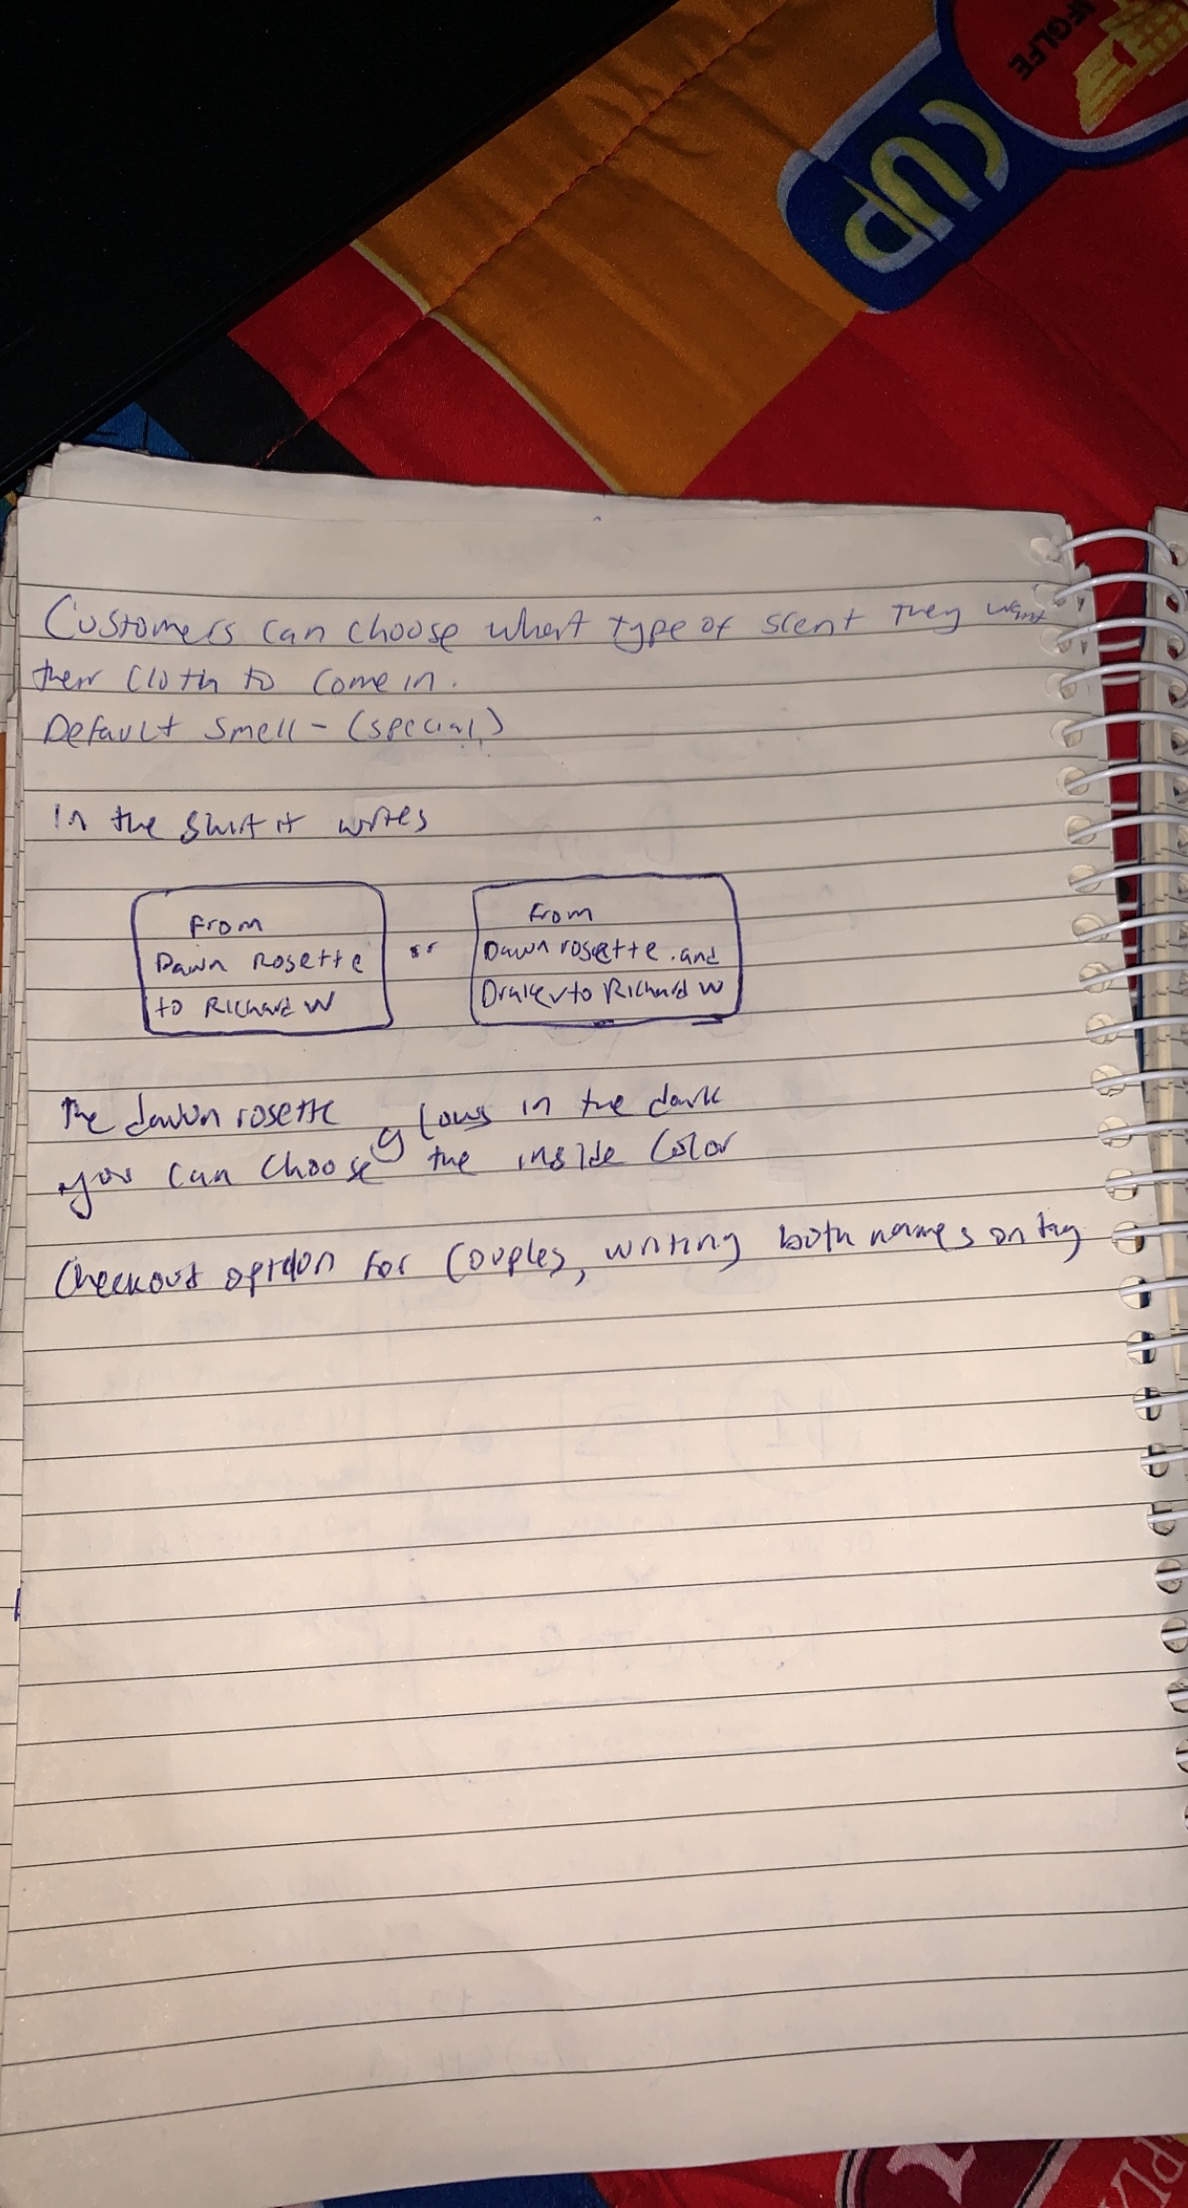 CUP
Customers can choose what type of scent They want
their Cloth to come in.
Default smell - (special)
In the shirt it writes
From
Dawn Rosette
to Richard W
or
From
Dawn rosette and
to Richard W
The dawn rosette glows in the dark
you can choose the inside Color
Checkout option for Couples, writing both names on tag